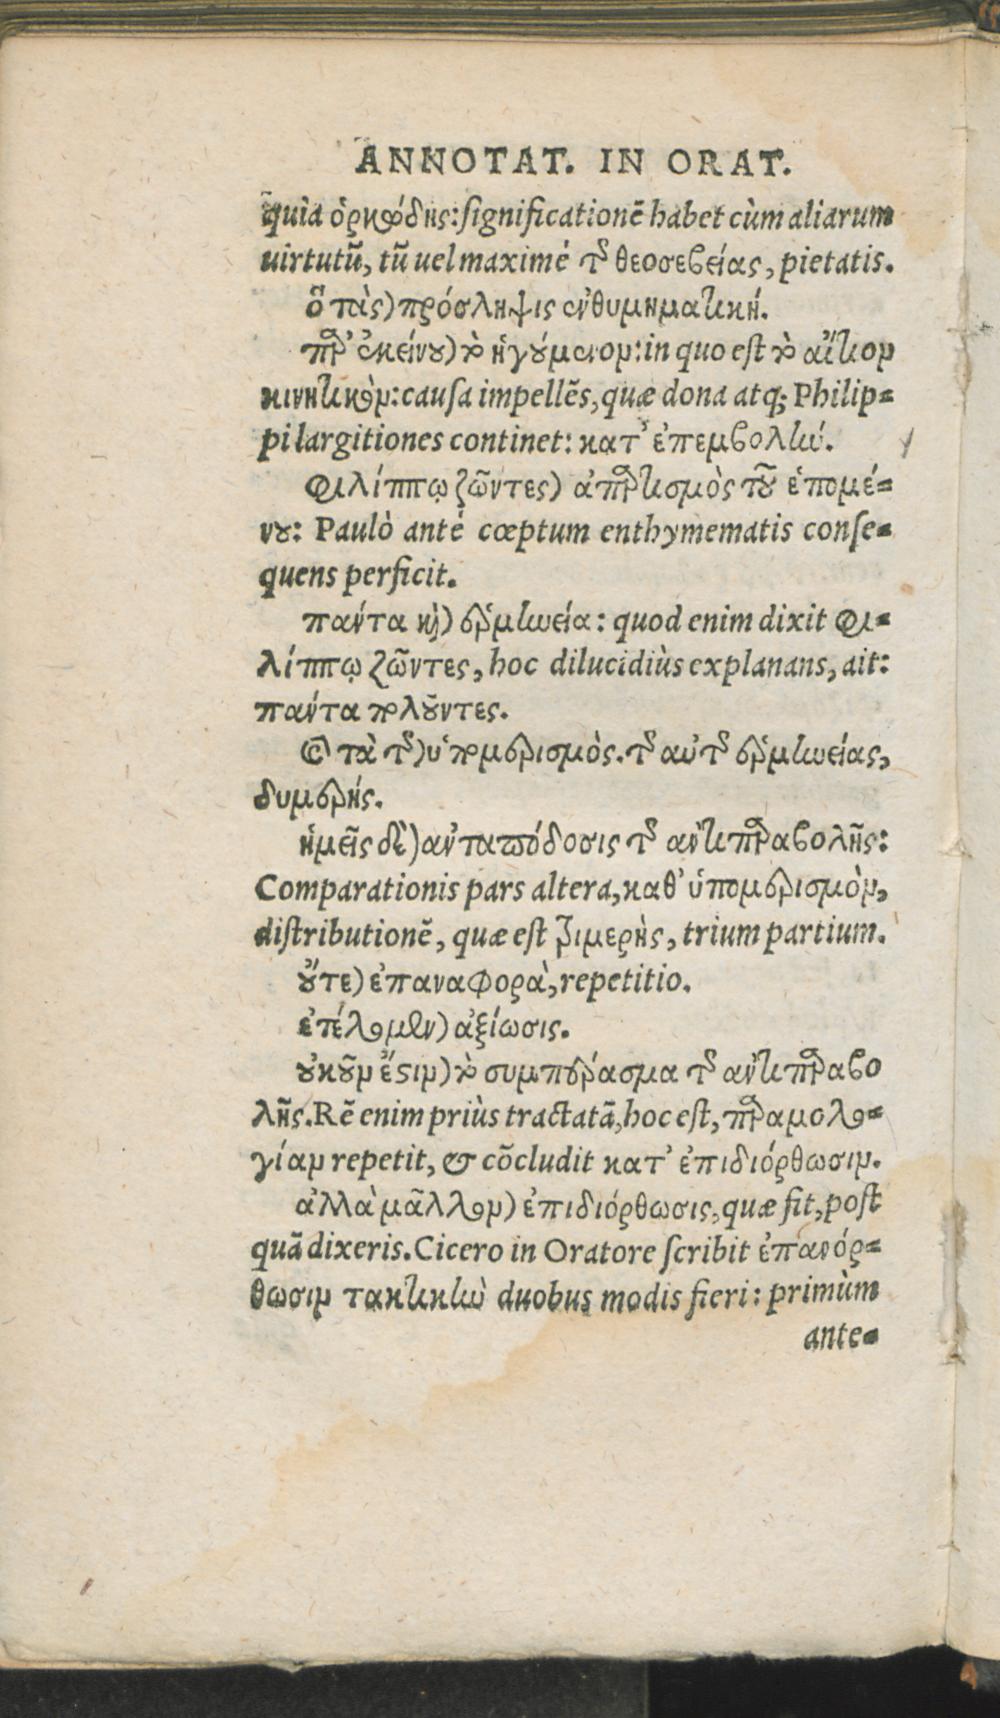 ANNOTAT. IN ORAT.
quia ὁρκώδης: significationẽ habet cùm aliarum
uirtutũ, tũ uel maximè τῆς θεοσεβείας, pietatis.
ὃ τὰς) πρόσληψις ἐνθυμηματική.
παρ' ἐκείνου) τὸ ἡγούμενον: in quo est τὸ αἴτιον
κινητικὸν: causa impellẽs, quæ dona atq; Philip-
pi largitiones continet: κατ' ἐπεμβολὴν.
Φιλίππῳ ζῶντες) ἀπαρτισμὸς τοῦ ἑπομέ-
νου: Paulò antè cœptum enthymematis conse-
quens perficit.
πάντα καὶ) ἑρμηνεία: quod enim dixit Φι-
λίππῳ ζῶντες, hoc dilucidiùs explanans, ait:
πάντα πολοῦντες.
τὰ τῆς) ὑπομερισμὸς. τῆς αὐτῆς ἑρμηνείας,
δυμερής.
ἡμεῖς δὲ) ἀνταπόδοσις τῆς ἀντιπαραβολῆς:
Comparationis pars altera, καθ' ὑπομερισμὸν,
distributionẽ, quæ est τριμερὴς, trium partium.
οὔτε) ἐπαναφορὰ, repetitio.
ἐπέλθωμεν) ἀξίωσις.
οὐκοῦν ἔστιν) τὸ συμπέρασμα τῆς ἀντιπαραβο
λῆς. Rẽ enim priùs tractatã, hoc est, παρομολο-
γίαν repetit, & cõcludit κατ' ἐπιδιόρθωσιν.
ἀλλὰ μᾶλλον) ἐπιδιόρθωσις, quæ fit, post
quã dixeris. Cicero in Oratore scribit ἐπανόρ-
θωσιν τακτικὴν duobus modis fieri: primùm
ante-